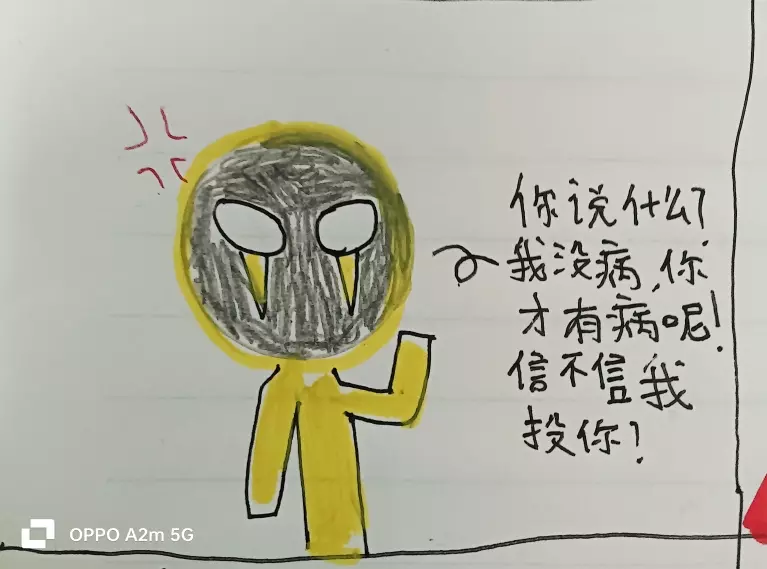 你说什么?
我没病,你
才有病呢!
信不信我
投你?
OPPO A2m 5G